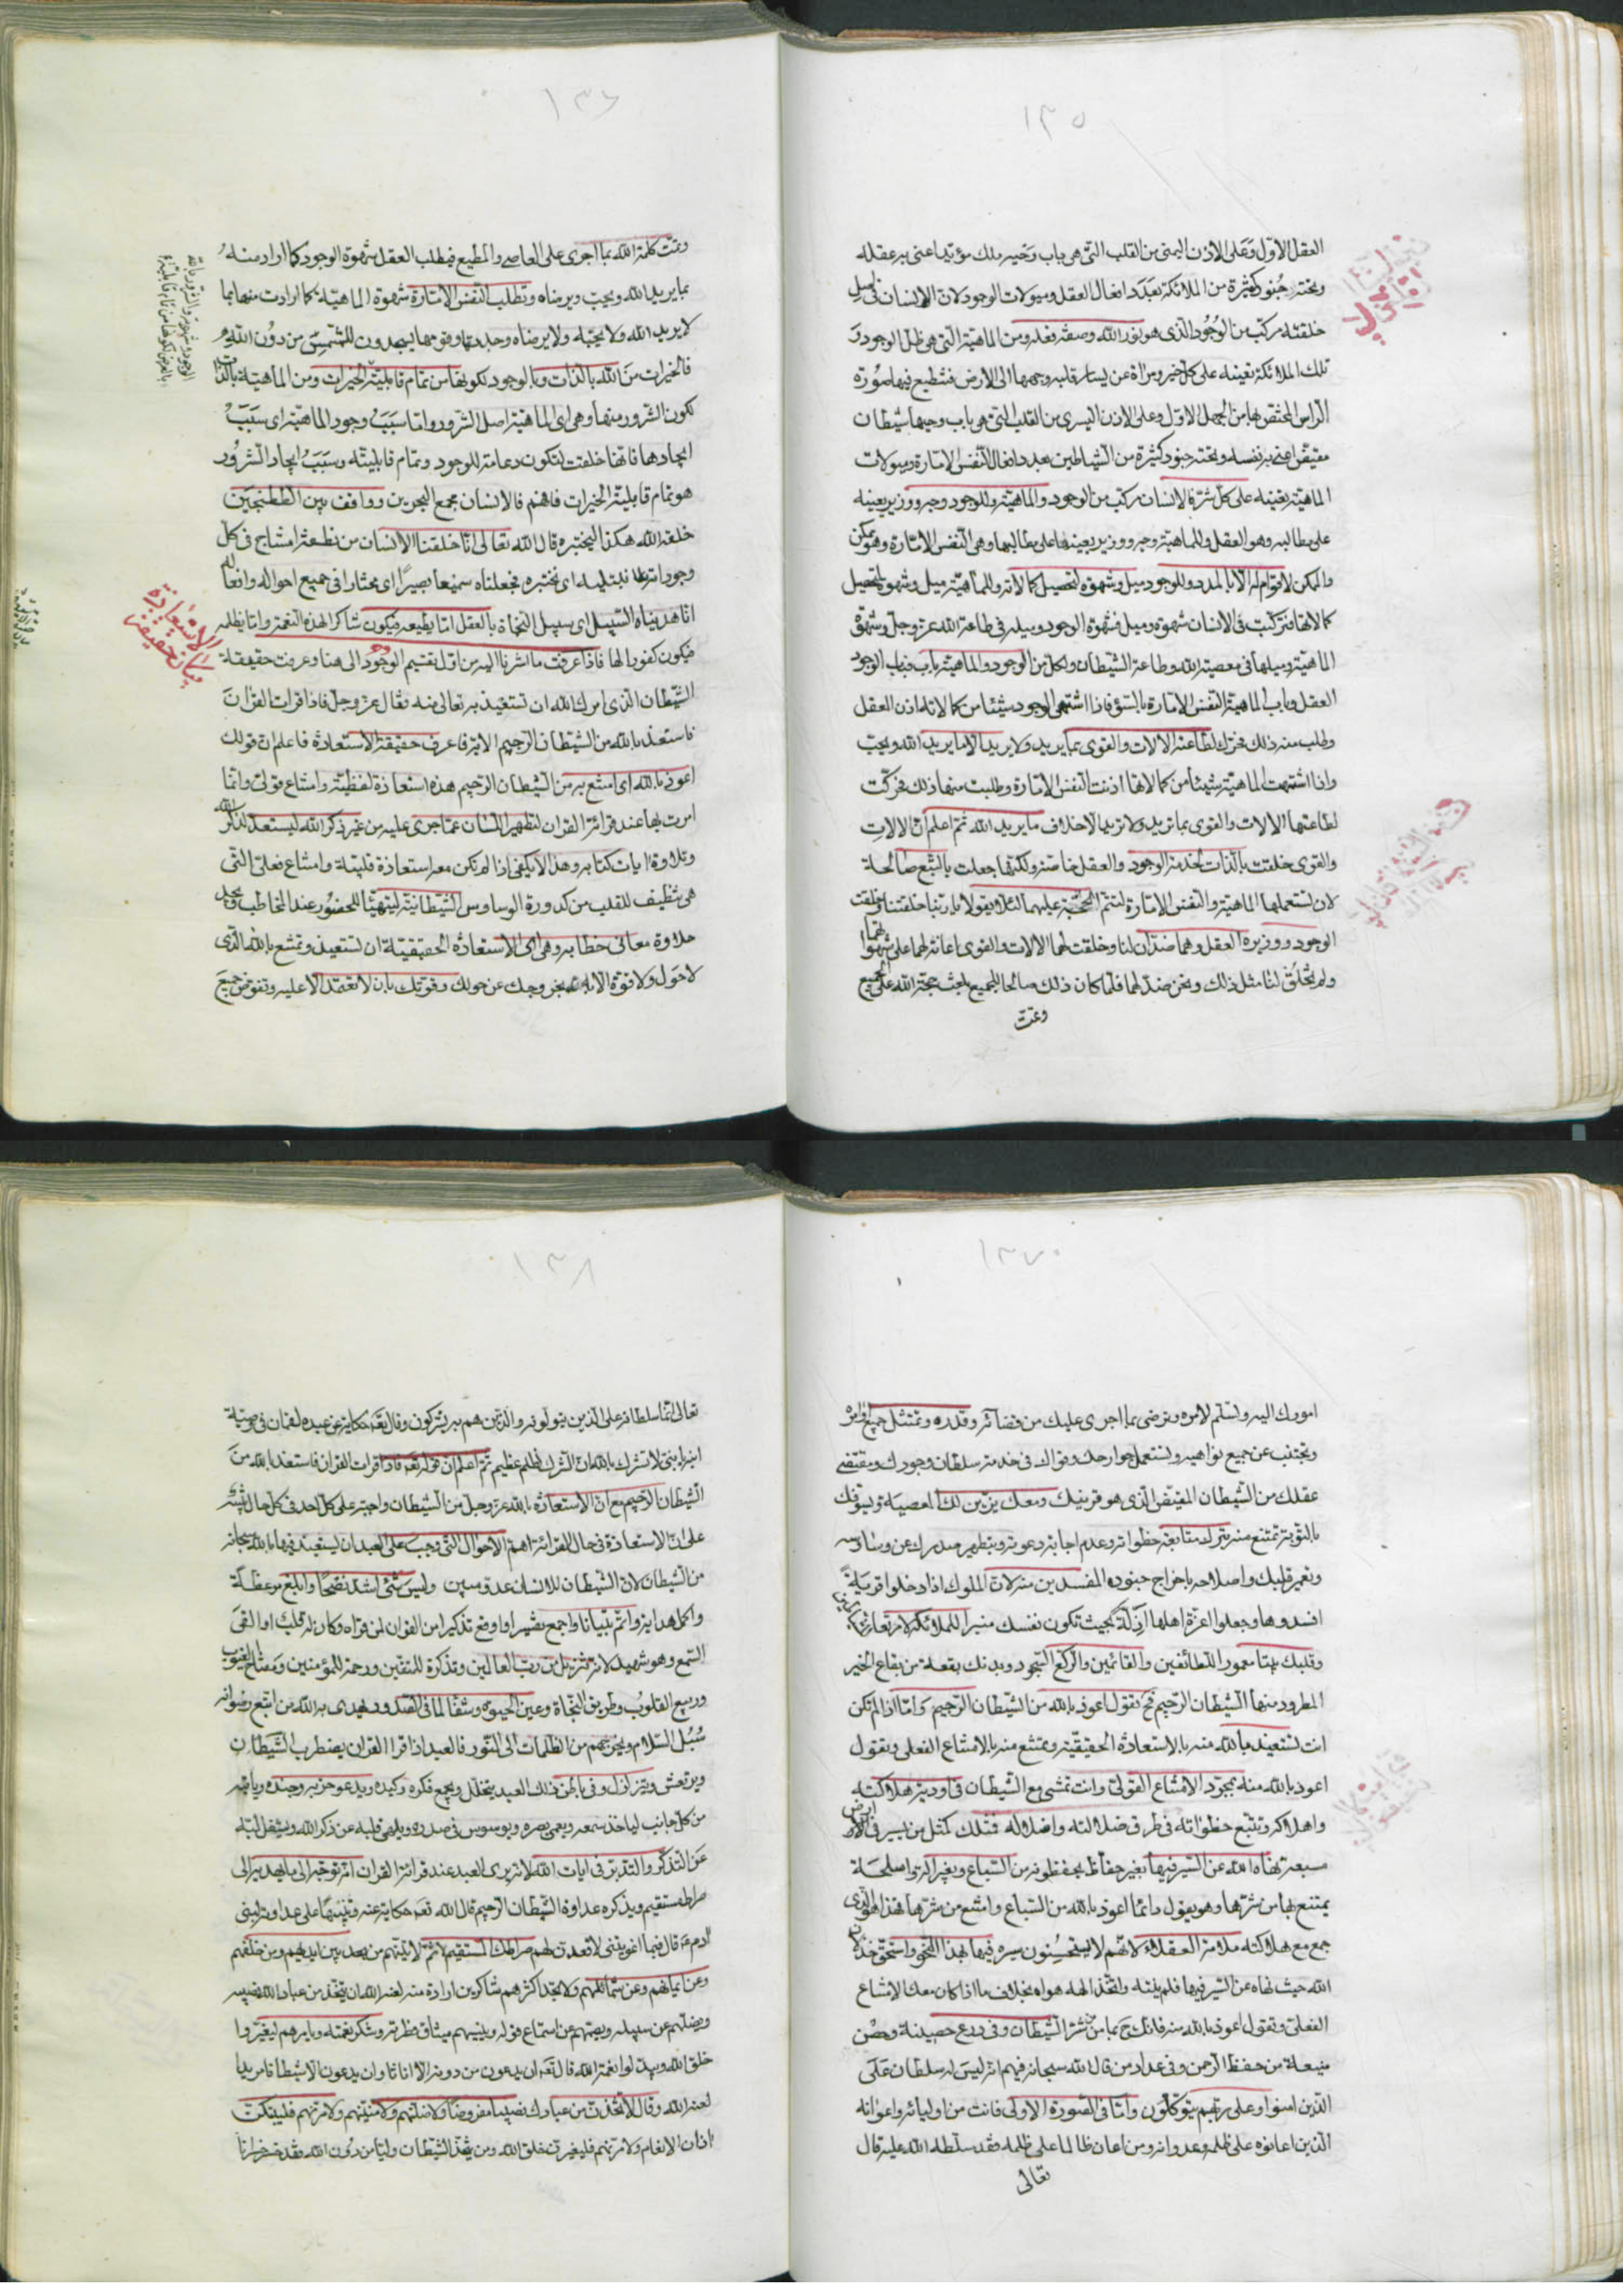 ١٣٥
العقل الاوّل وعلى الاذن اليمنى من القلب التى هى باب وحيه ملك مؤيد اعنى به عقله
وتحته جنود كثيرة من الملائكة بعدد افعال العقل وميولات الوجود لان الانسان فى اصل
خلقته مركّب من الوجود الذى هو نور الله وصفة فعله ومن الماهيّة التى هى ظلّ الوجود و
تلك الملائكة تعينه على كلّ خير ومراة عن يسار قلبه وجهها الى الارض فتنطبع فيها صورة
الراس المختص بها من الجهل الاوّل وعلى الاذن اليسرى من القلب التى هى باب وحيها شيطان
مقيّض اعنى به نفسه وتحته جنود كثيرة من الشياطين بعدد افعال النّفس الامّارة وميولات
الماهيّة تعينه على كلّ شرّ فالانسان مركّب من الوجود والماهيّة وللوجود وجه ووزير يعينه
على مطالبه وهو العقل وللماهيّة وجه ووزير يعينها على مطالبها وهى النّفس الامّارة وهو ممكن
والممكن لا قوام له الا بالمدد وللوجود ميل وشهوة لتحصيل كمالاته وللماهيّة ميل وشهوة لتحصيل
كمالاتها فتركّبت فى الانسان شهوة وميل فشهوة الوجود وميله فى طاعة الله عز وجل وشهوة
الماهيّة وميلها فى معصية الله وطاعة الشّيطان ولكل من الوجود والماهيّة باب فباب الوجود
العقل وباب الماهية النّفس الامّارة بالسّوء فاذا اشتهى الوجود شيئا من كمالاته اذن العقل
وطلب منه ذلك فحرّك لطاعته الالات والقوى بما يريد ولا يريد الا ما يريد الله ويحبّ
واذا اشتهت الماهيّة شيئا من كمالاتها اذنت النّفس الامّارة وطلبت منها ذلك فحرّكت
لطاعتها الالات والقوى بما تريد ولا تريد الا خلاف ما يريد الله ثم اعلم انّ الالات
والقوى خلقت بالذّات لخدمة الوجود والعقل خاصّة ولكنّها جعلت بالتّبع صالحة
لان تستعملها الماهيّة والنّفس الامّارة لتتمّ الحجّة عليهما لئلا يقولا يا ربّنا خلقتنا وخلقت
الوجود ووزيره العقل وهما ضدّان لنا وخلقت لهما الالات والقوى اعانة لهما على شهوتهما
ولم تخلق لنا مثل ذلك ونحن ضدّ لهما فلمّا كان ذلك صالحا للجميع بلغت حجّة الله على الجميع
وتمّت
١٣٦
وتمّت كلمة الله بما اجرى على العاصى والمطيع فيطلب العقل شهوة الوجود كما اراد منه
بما يريد الله ويحبّ ويرضاه وتطلب النّفس الامّارة شهوة الماهيّة كما ارادت منها بما
لا يريد الله ولا يحبّه ولا يرضاه وجدتها وقومها يسجدون للشّمس من دون الله
فالخيرات من الله بالذّات وبالوجود لكونها من تمام قابليّة الخيرات ومن الماهيّة بالذّات
لكون الشّرور منها وهى اى الماهيّة اصل الشّرور وامّا سبب وجود الماهيّة اى سبب
ايجادها فانّها خلقت لتكون دعامة للوجود وتمام قابليّته وسبب ايجاد الشّرور
هو تمام قابليّة الخيرات فافهم فالانسان مجمع البحرين وواقف بين الطتنجين
خلقه الله هكذا ليختبره قال الله تعالى انّا خلقنا الانسان من نطفة امشاج فى كلّ
نبتليه اى نختبره فجعلناه سميعا بصيرًا اى مختارا فى جميع احواله وافعاله
انّا هديناه السّبيل اى سبيل النّجاة بالعقل امّا يطيعه فيكون شاكرا لهذه النّعمة وامّا يظلمه
فيكون كفورا لها فاذا عرفت ما اشرنا اليه من اوّل تقسيم الوجود الى هنا وعرفت حقيقة
الشّيطان الذى امرك الله ان تستعيذ به تعالى منه فقال عزّ وجلّ فاذا قرات القران
فاستعذ بالله من الشّيطان الرّجيم الاية فاعرف حقيقة الاستعاذة فاعلم انّ قولك
اعوذ بالله اى امتنع به من الشّيطان الرّجيم هذه استعاذة لفظيّة وامتناع قولىّ وانّما
امرت بها عند قرائة القران لتطهير اللّسان عمّا جرى عليه من غير ذكر الله ليستعدّ لذكر الله
وتلاوة ايات كتابه وهذا لا يكفى اذا لم تكن معه استعاذة قلبيّة وامتناع فعلىّ التى
هى تنظيف للقلب من كدورة الوساوس الشّيطانيّة ليتهيّأ للحضور عند المخاطب ويجد
حلاوة معانى خطابه وهى اى الاستعاذة الحقيقيّة ان تستعيذ وتمتنع بالله الذى
لا حول ولا قوّة الا به بخروجك عن حولك وقوّتك بان لا تعتمد الا عليه وتفوّض جميع
بيان الاستعاذة
الحقيقية
١٣٧
امورك اليه وتسلّم لامره وترضى بما اجرى عليك من قضائه وقدره وتمتثل جميع اوامره
وتجتنب عن جميع نواهيه وتستعمل جوارحك وقواك فى خدمة سلطان وجودك ومقتضى
عقلك من الشّيطان المقيّض الذى هو قرينك ومعك يزيّن لك المعصية ويسوّفك
بالتّوبة تمتنع منه بترك متابعة خطواته وعدم اجابة دعوته وبتطهير صدرك عن وساوسه
وتعمير قلبك واصلاحه باخراج جنوده المفسدين منه لانّ الملوك اذا دخلوا قرية
افسدوها وجعلوا اعزّة اهلها اذلّة بحيث تكون نفسك منبرا للملائكة
وقلبك بيتا معمورا للطّائفين والقائمين والركّع السّجود وبدنك بقعة من بقاع الخير
المطرود منها الشّيطان الرّجيم فح تقول اعوذ بالله من الشّيطان الرّجيم وامّا اذا لم تكن
انت تستعيذ بالله منه بالاستعاذة الحقيقيّة وتمتنع منه بالامتناع الفعلى وتقول
اعوذ بالله منه بمجرّد الامتناع القولىّ وانت تمشى مع الشّيطان فى اودية هلاكته
واهلاكه وتتّبع خطواته فى طرق ضلالته واضلاله فمثلك كمثل من يسير فى الارض
مسبعة نهاه الله عن السّير فيها بغير حفّاظ يحفظونه من السّباع وبغير الة واسلحة
يمتنع بها من شرّها وهو يقول دائما اعوذ بالله من السّباع وامتنع من شرّها فهذا هو الذى
جمع مع هلاكته ملامة العقلاء لانّهم لا يستحسنون سيره فيها بهذا النّحو واستحقّ خذلان
الله حيث نهاه عن السّير فيها فلم ينته واتّخذ الهه هواه بخلاف ما اذا كان معك الامتناع
الفعلىّ وتقول اعوذ بالله منه فانّك ح بمامن من شرّ الشّيطان وفى درع حصينة وحصن
منيعة من حفظ الرّحمن وفى عداد من قال الله سبحانه فيهم انّه ليس له سلطان على
الّذين امنوا وعلى ربّهم يتوكّلون وامّا فى الصّورة الاولى فانت من اوليائه واعوانه
الّذين اعانوه على ظلمه وعدوانه ومن اعان ظالما على ظلمه فقد سلّطه الله عليه قال
تعالى
١٣٨
تعالى انّما سلطانه على الّذين يتولّونه والّذين هم به مشركون وقال تعه حكاية عن عبده لقمان فى وصيّة
ابنه يا بنىّ لا تشرك بالله انّ الشّرك لظلم عظيم ثم اعلم ان قوله تعه فاذا قرات القران فاستعذ بالله من
الشّيطان الرّجيم مع انّ الاستعاذة بالله عز وجل من الشّيطان واجبة على كلّ احد فى كلّ حال
على انّ الاستعاذة فى حال القرائة اهمّ الاحوال التى وجب على العبد ان يستعيذ فيها بالله سبحانه
من الشّيطان لانّ الشّيطان للانسان عدوّ مبين وليس شئ اشدّ نصحا وابلغ موعظة
واكمل هداية واتمّ تبيانا واجمع تفسيرا واوقع تذكيرا من القران لمن قراه وكان له قلب او القى
السّمع وهو شهيد لانّه تنزيل من ربّ العالمين وتذكرة للمتّقين ورحمة للمؤمنين ومفتاح الغيوب
وربيع القلوب وطريق النّجاة وعين الحيوة وشفا لما فى الصّدور ويهدى به الله من اتّبع رضوانه
سُبُل السّلام ويخرجهم من الظّلمات الى النّور فالعبد اذا قرا القران يضطرب الشّيطان
ويرتعش ويتزلزل وفى باطن ذلك العبد يتخلّل ويجمع فكره وكيده ويدعو حزبه وجنده وياتيه
من كلّ جانب لياخذ سمعه ويعمى بصره ويوسوس فى صدره ويلهى قلبه عن ذكر الله ويشغل لبّه
عن التذكّر والتّدبّر فى ايات الله لانّه يرى العبد عند قرائة القران انّه توجّه الى ما يهديه الى
صراط مستقيم ويذكره عداوة الشّيطان الرّجيم قال الله تعه حكاية عنه وتنبيها على عداوته لبنى
ادم قال فبما اغويتنى لاقعدنّ لهم صراطك المستقيم ثمّ لاتينّهم من بين ايديهم ومن خلفهم
وعن ايمانهم وعن شمائلهم ولا تجد اكثرهم شاكرين ارادة منه لعنه الله ان يتّخذ من عباد الله نصيبه
ويضلّهم عن سبيله ويصمّهم عن استماع قوله وينسيهم ميثاق فطرته وشكر نعمته ويامرهم ليغيّروا
خلق الله ويبدّلوا نعمة الله قال تعه ان يدعون من دونه الا اناثا وان يدعون الا شيطانا مريدا
لعنه الله وقال لاتّخذنّ من عبادك نصيبا مفروضًا ولاضلّنّهم ولامنّينّهم ولامرنّهم فليبتّكنّ
اذان الانعام ولامرنّهم فليغيّرنّ خلق الله ومن يتّخذ الشّيطان وليّا من دون الله فقد خسر خسرانا